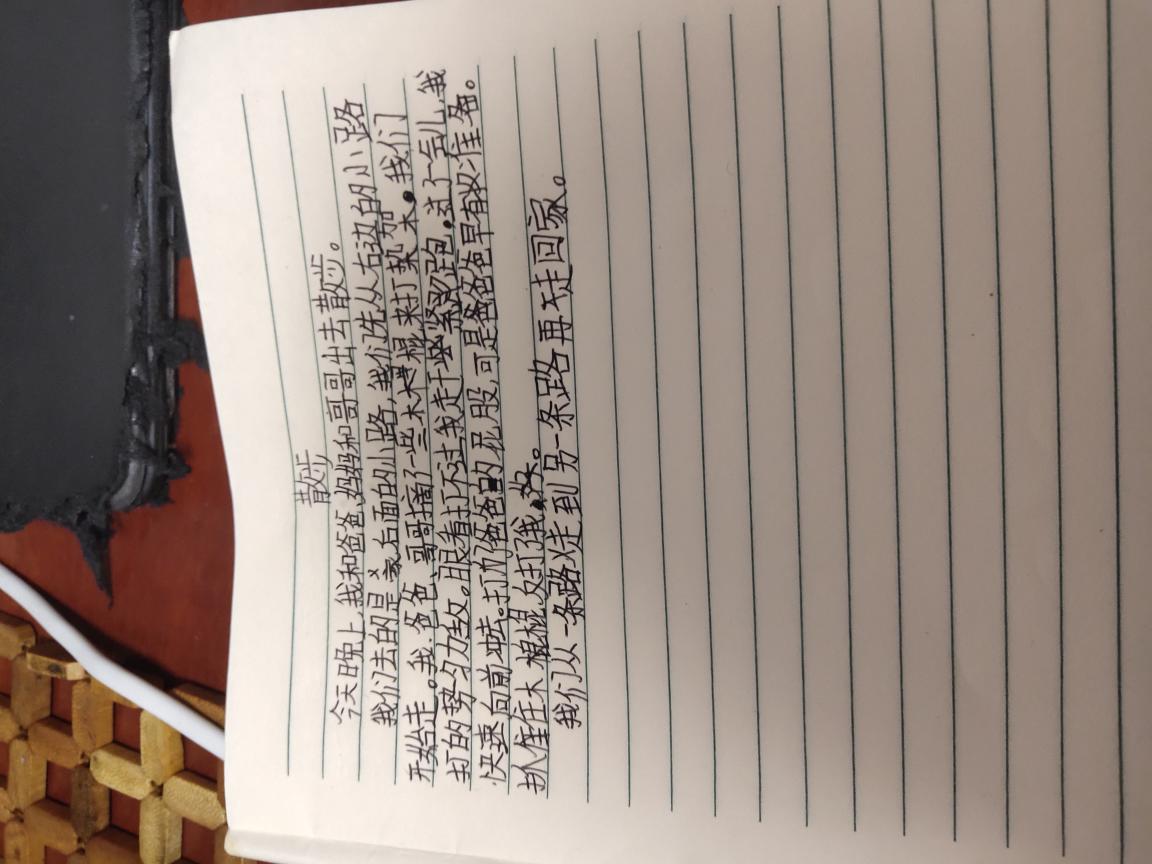 散步
今天晚上,我和爸爸、妈妈和哥哥出去散步。
我们去的是家后面的小路,我们先从右边的小路
开始走。我、爸爸、哥哥摘了一些木棍来打架。我们
打的势匀力敌。眼看打不过,我走赶紧跑。过了一会儿,我
快速向前冲。打的爸爸的屁股,可是爸爸早有准备。
抓住住木棍,反打我。
我们从一条路走到另一条路再走回家。